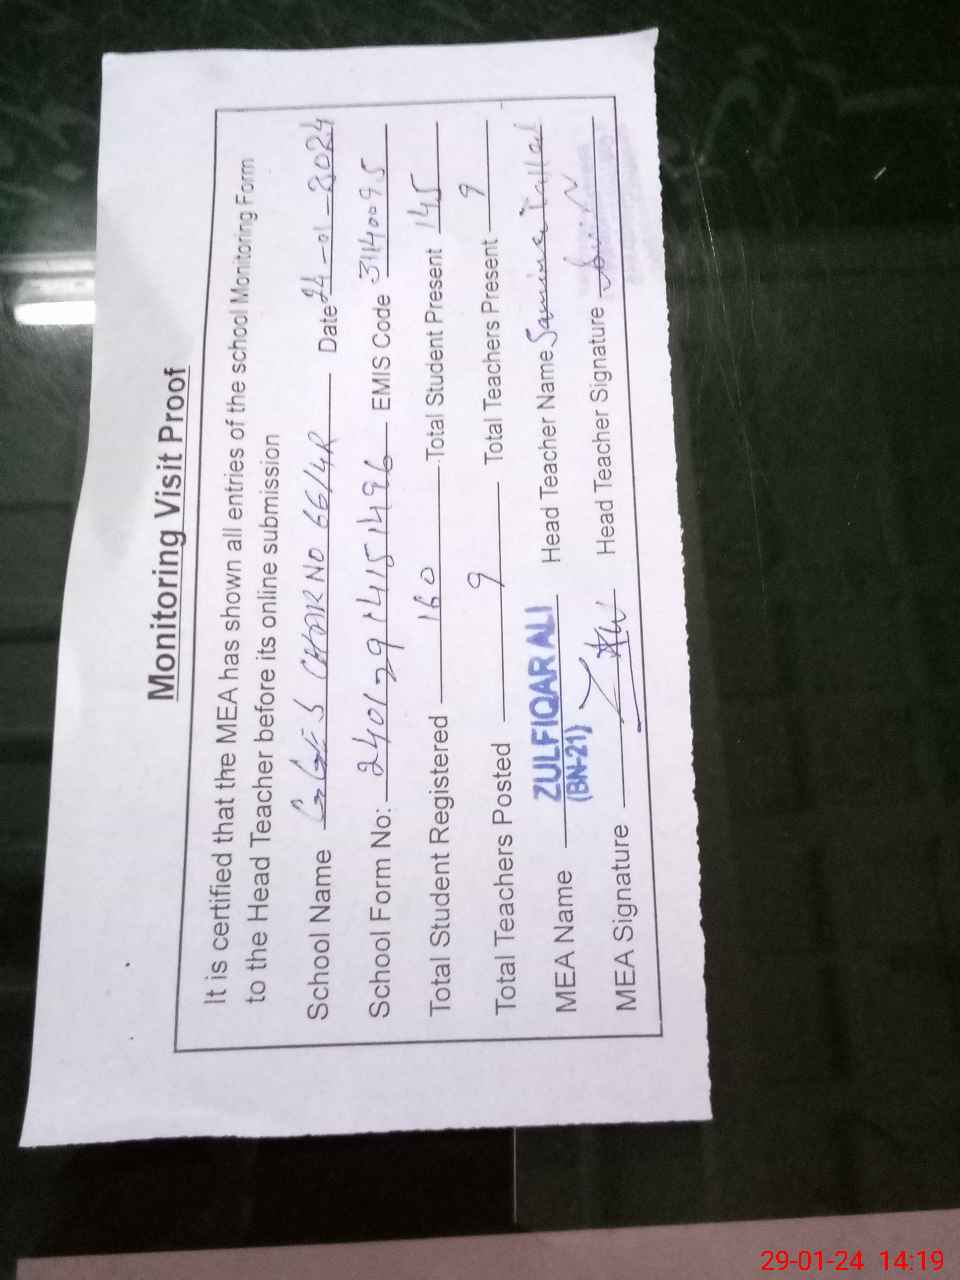 Monitoring Visit Proof
It is certified that the MEA has shown all entries of the school Monitoring Form
to the Head Teacher before its online submission
School Name GGES CHAK NO 66/4R Date 24-01-2024
School Form No: 24012914151496 EMIS Code 31140095
Total Student Registered 160 Total Student Present 145
Total Teachers Posted 9 Total Teachers Present 9
MEA Name ZULFIQAR ALI Head Teacher Name Samina
(BN-21)
MEA Signature Head Teacher Signature
29-01-24 14:19